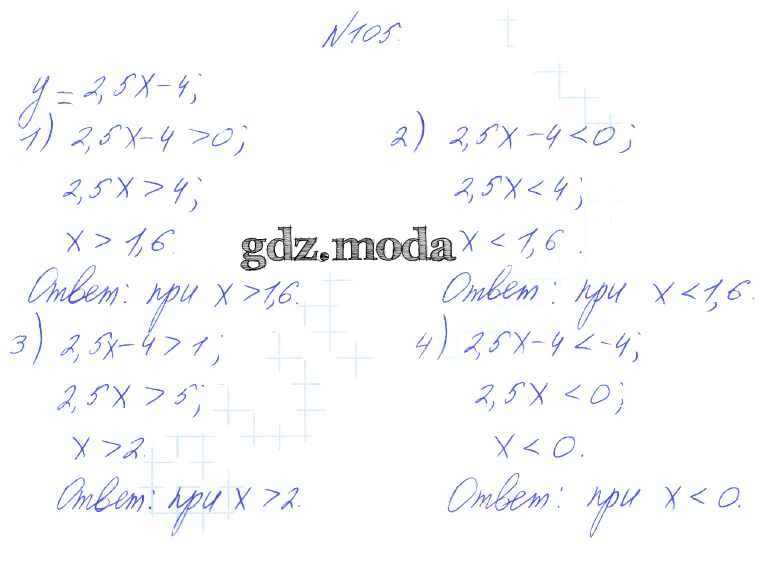 №105.
y = 2,5x-4;
1) 2,5x-4>0;
2,5x>4;
x>1,6.
Ответ: при x>1,6.
2) 2,5x-4<0;
2,5x<4;
x<1,6.
Ответ: при x<1,6.
gdz.moda
3) 2,5x-4>1;
2,5x>5;
x>2.
Ответ: при x>2.
4) 2,5x-4<-4;
2,5x<0;
x<0.
Ответ: при x<0.